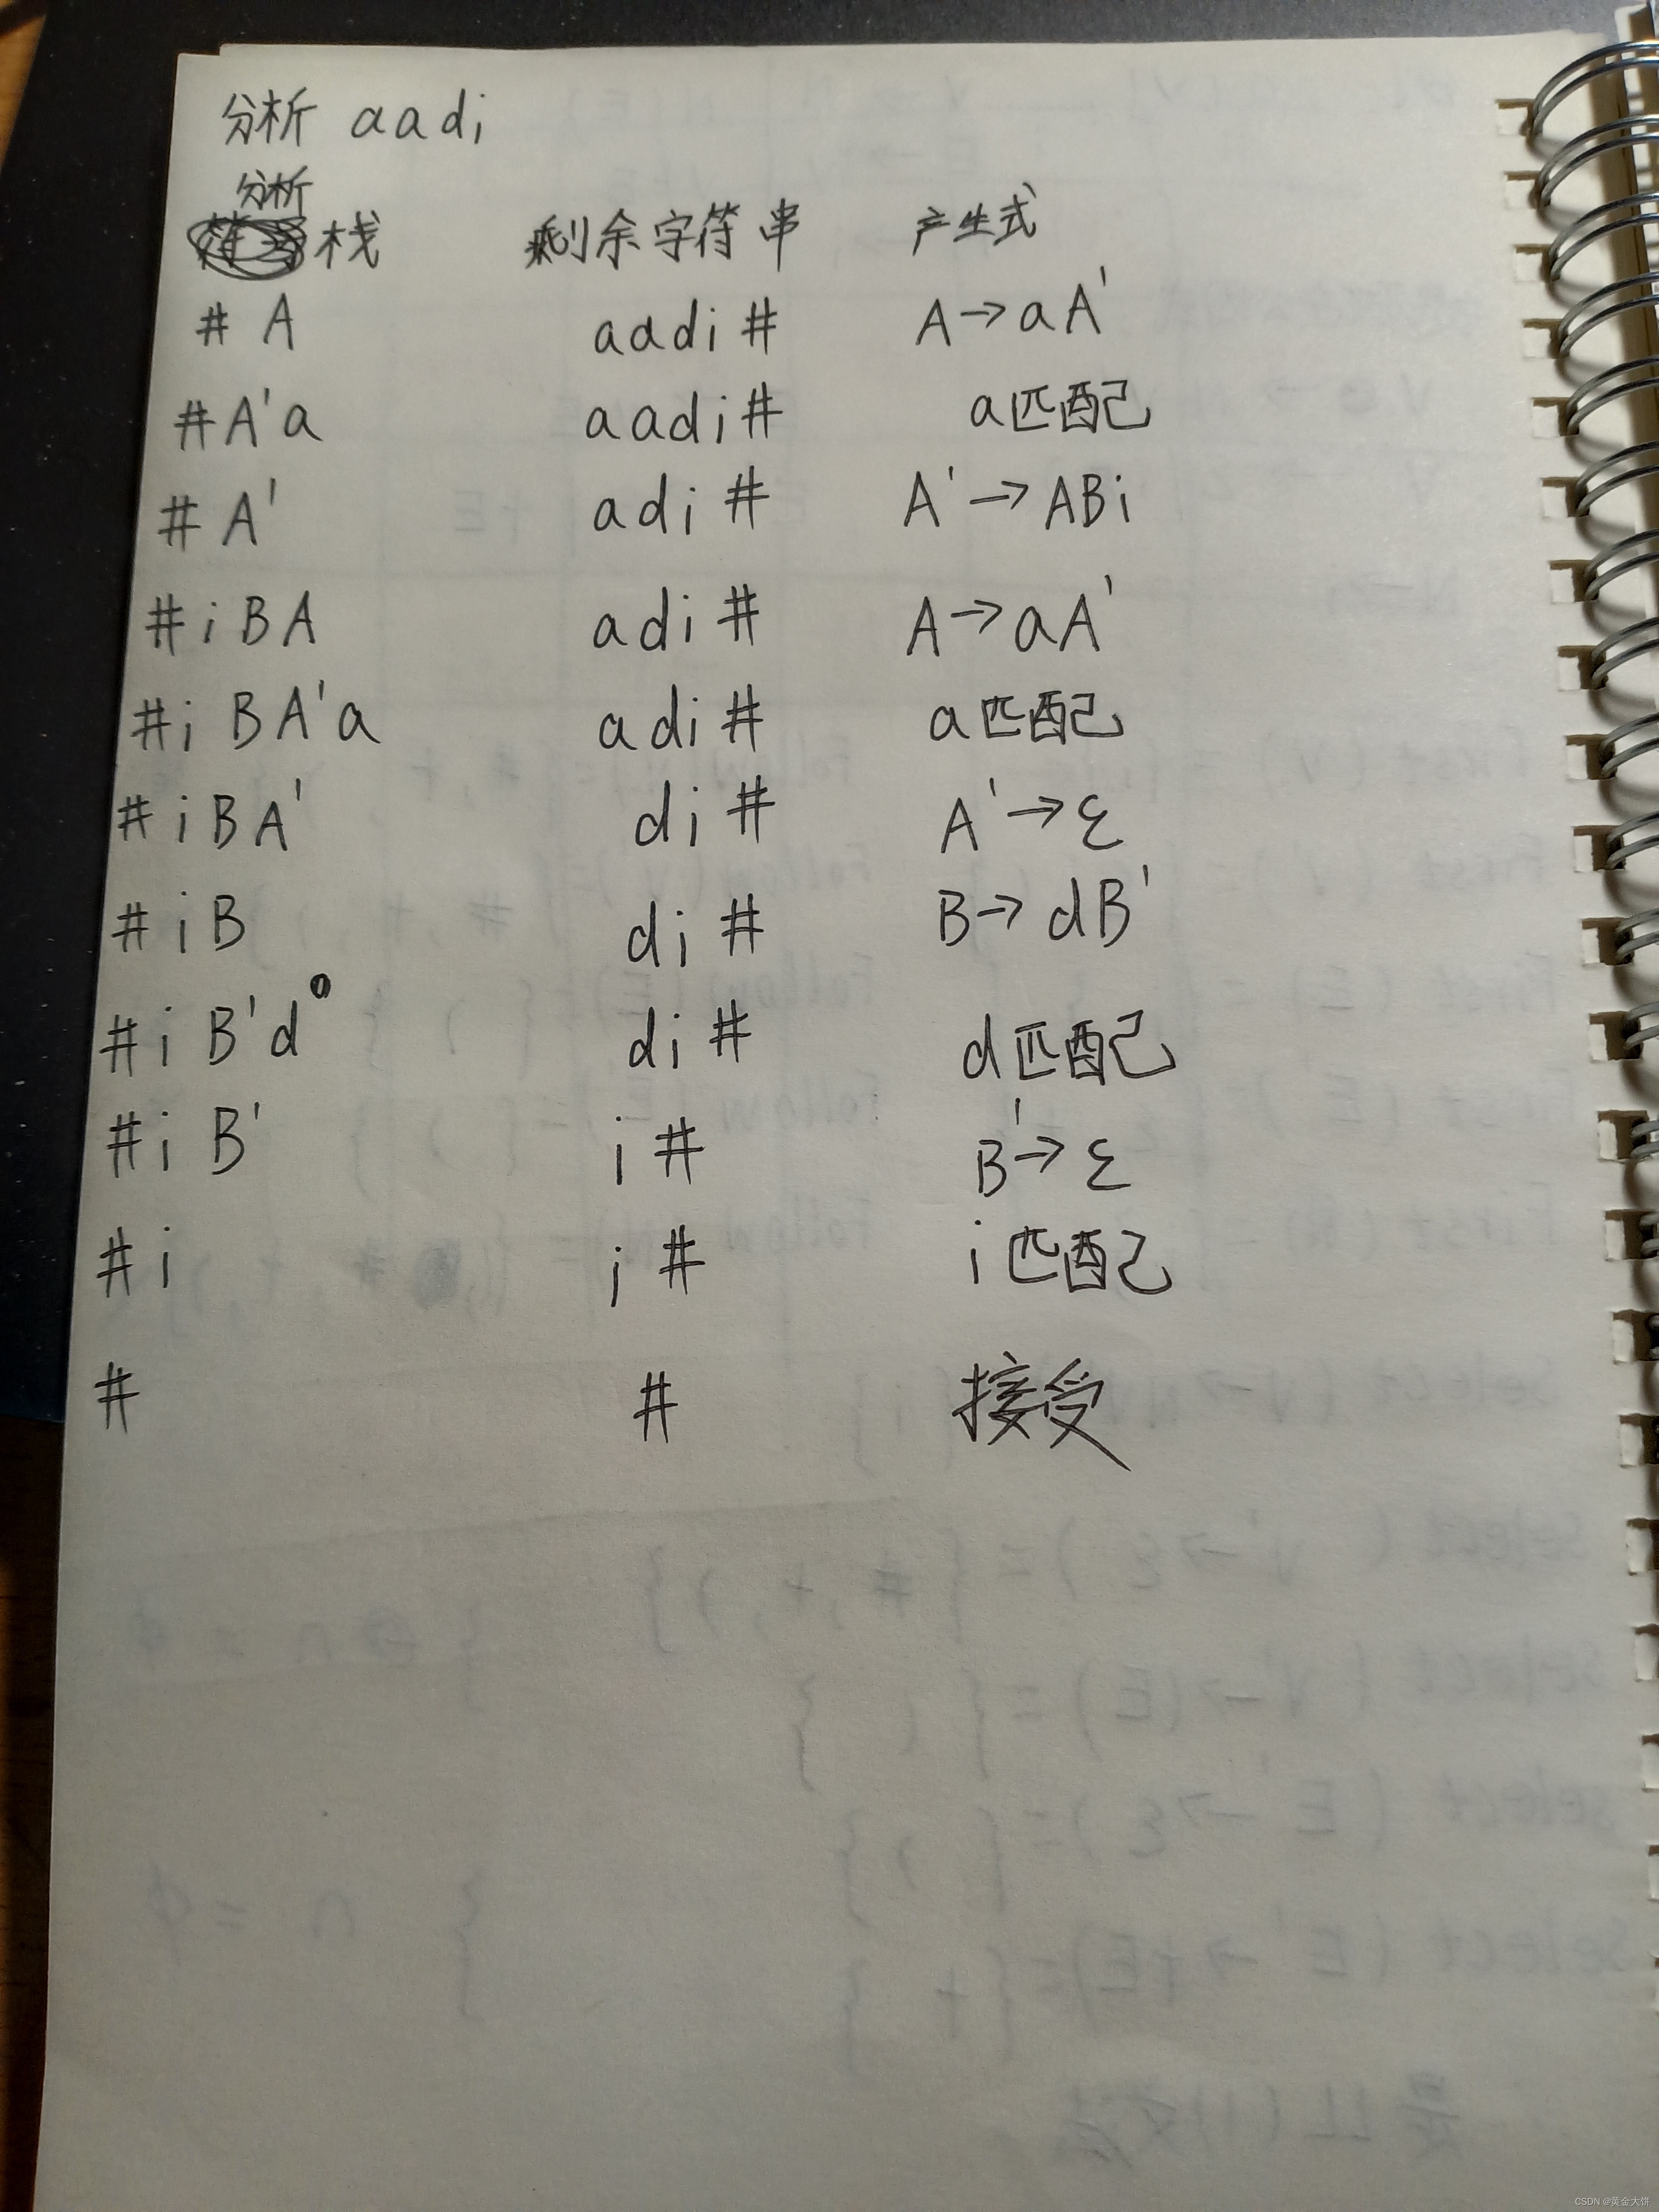 分析 aadi
分析
栈 剩余字符串 产生式
# A aadi # A→aA'
#A'a aadi# a匹配
# A' adi # A'→ABi
#iBA adi# A→aA'
#iBA'a adi# a匹配
#iBA' di# A'→ε
#iB di# B→dB'
#iB'd di# d匹配
#iB' i# B'→ε
#i i# i匹配
# # 接受
CSDN @黄金大饼